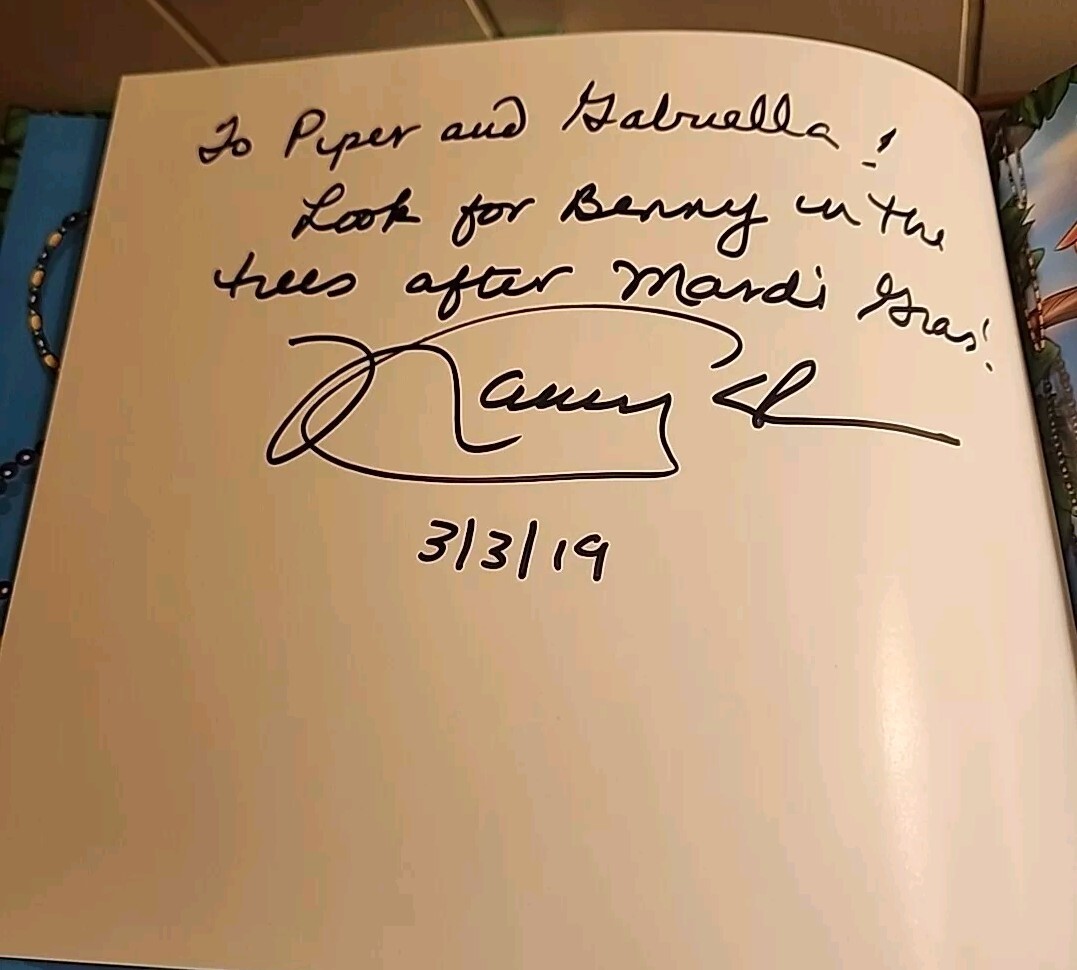 To Piper and Gabriella!
Look for Benny in the
trees after Mardi Gras!
Nancy
3/3/19